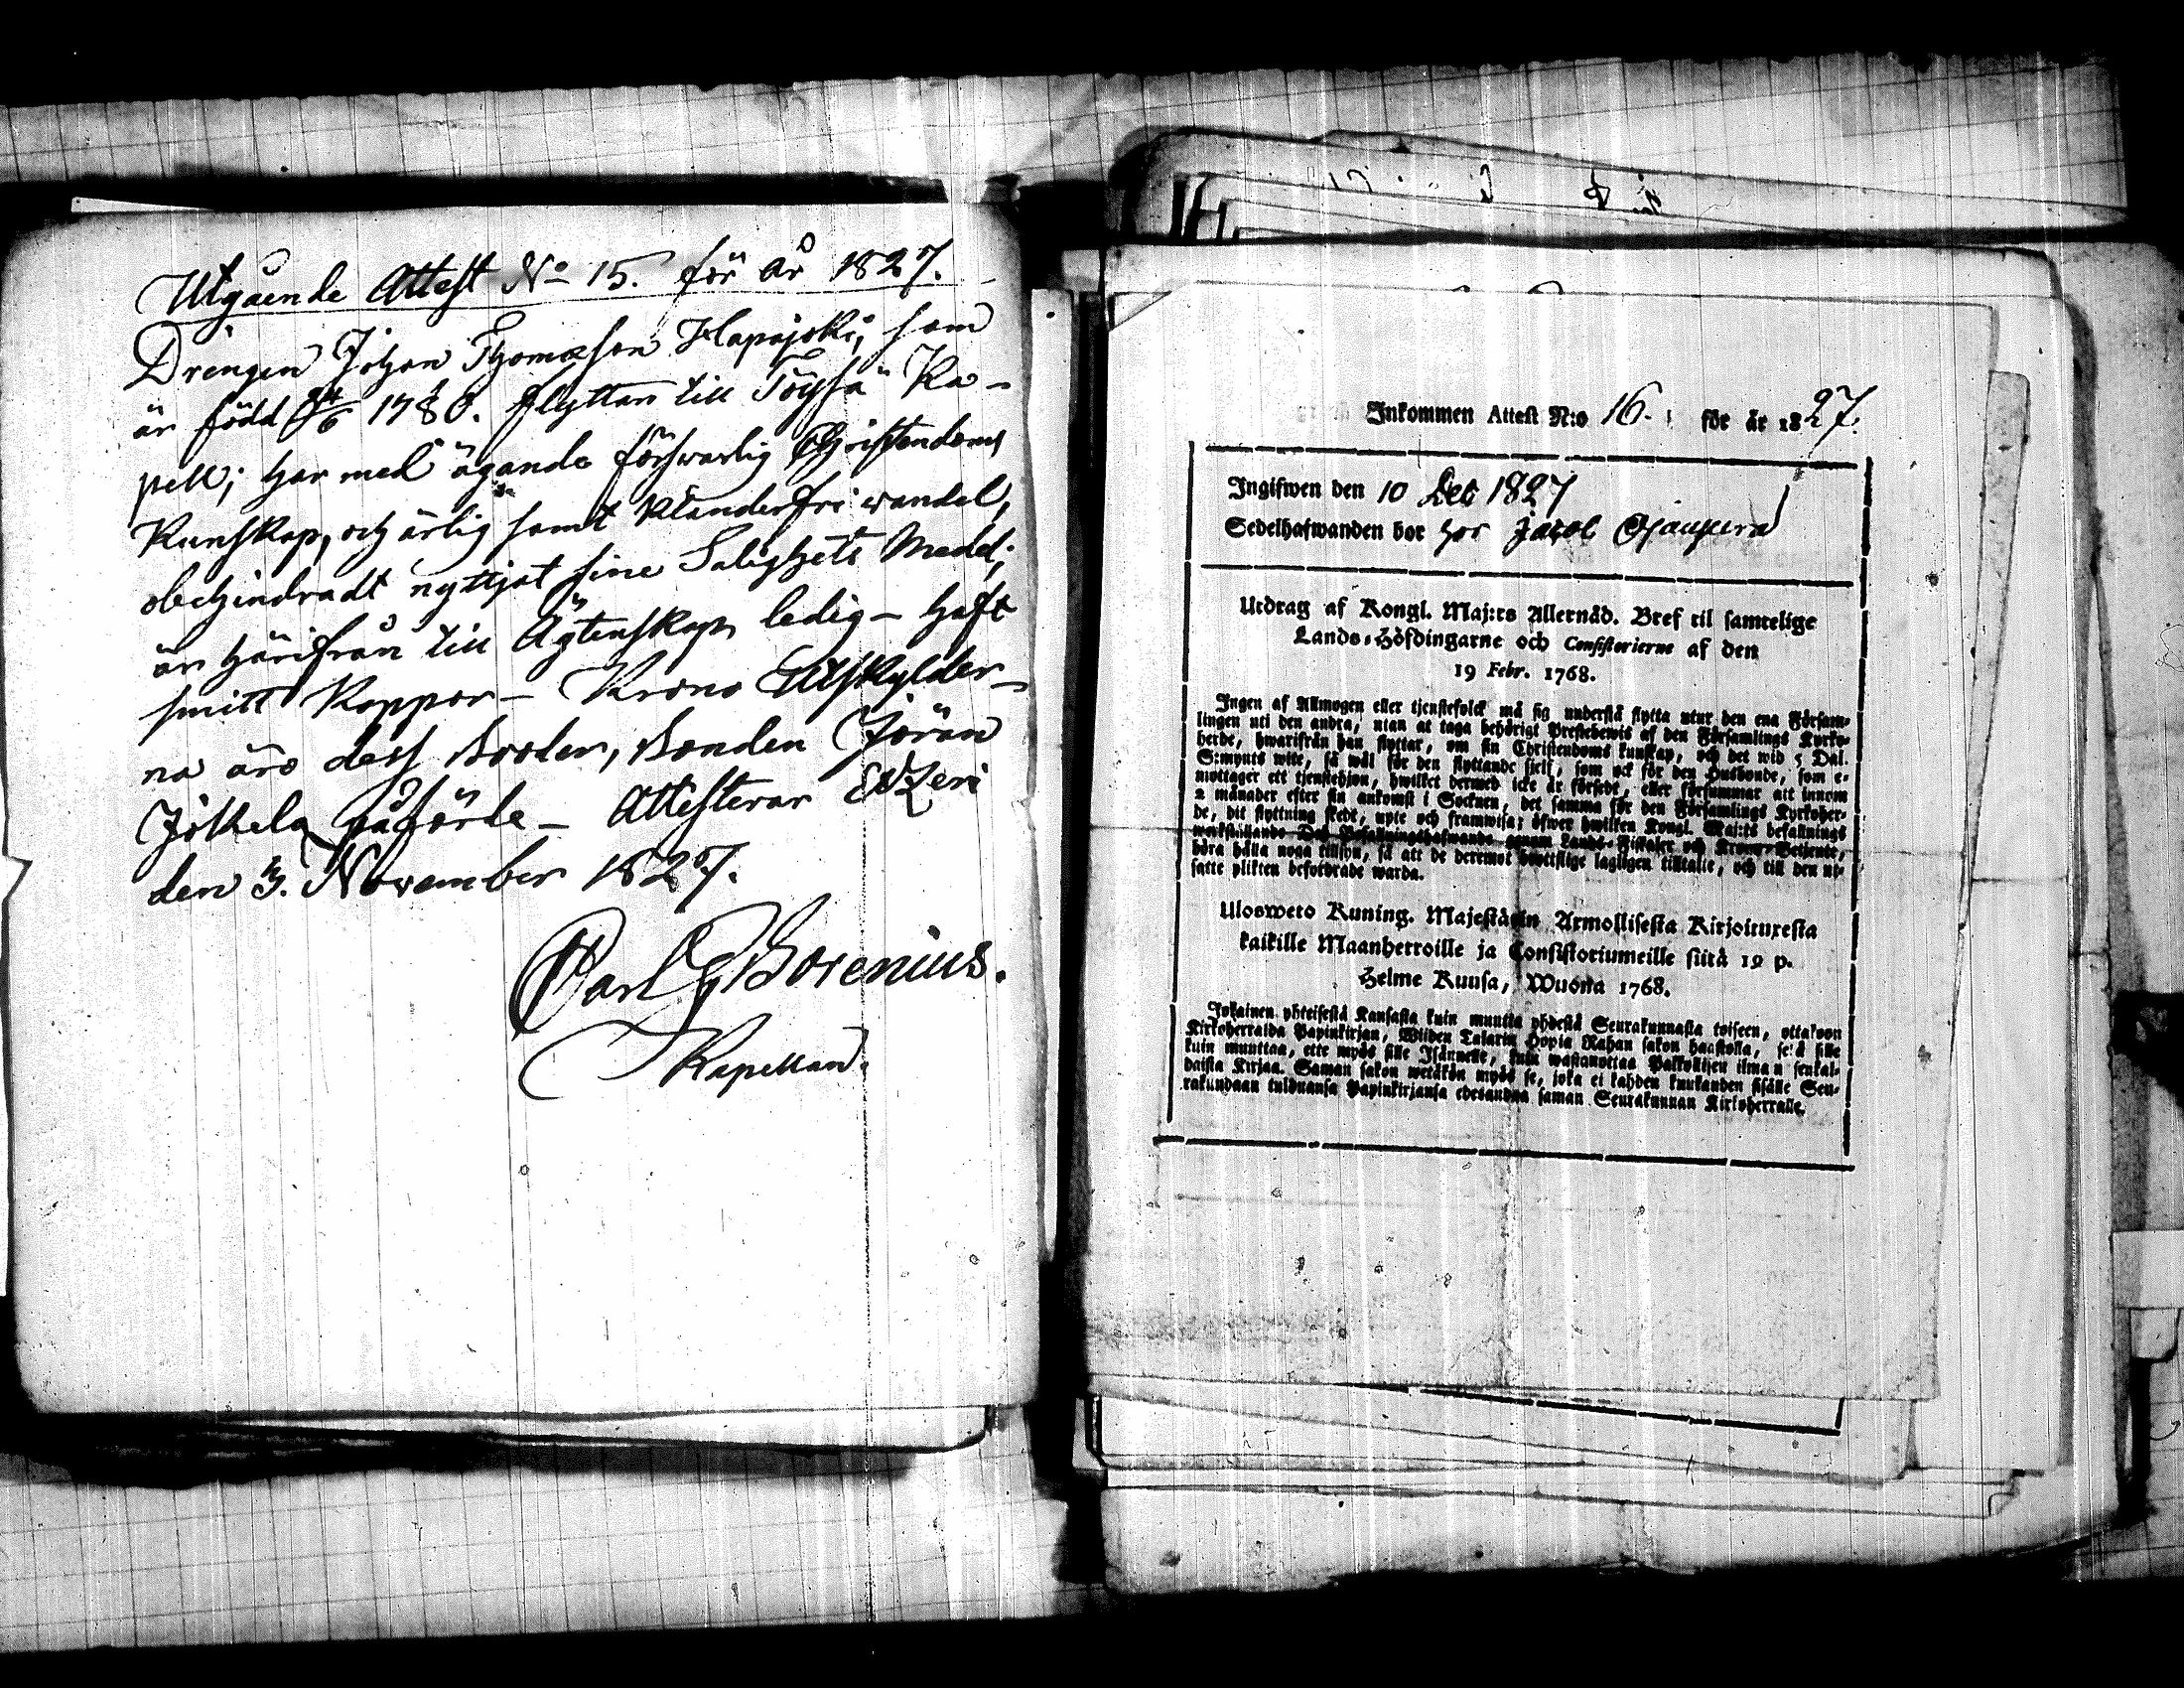 Utgående Attest No 15. för år 1827.
Drengen Johan Thomasson Hapajoki, som
är född 24/6 1780. flyttar till Töysä Ka-
pell; har med ägande förswarlig Christendoms
Kunskap, och ärlig samt klanderfri wandel,
obehindradt nyttjat sine Salighets Medel;
är härifrån till Ägtenskap ledig - haft
smitt Koppor - Krono Utskylder-
na äro dess Broder, Bonden Jöran
Jokela påförde - Attesterar Etzeri
den 3. November 1827.
Carl G Borenius.
Kapellan.
Inkommen Attest N:o 16. för år 1827.
Ingifwen den 10 Dec 1827
Sedelhafwanden bor hos Jacob
Utdrag af Kongl. Maj:ts Allernåd. Bref til samtelige
Lands-Höfdingarne och Consistorierne af den
19 Febr. 1768.
Ingen af Allmogen eller tjenstefolck må sig understå flytta utur den ena Försam-
lingen uti den andra, utan at taga behörigt Prestebewis af den Församlings Kyrko-
herde, hwarifrån han flyttar, om sin Christendoms kunskap, och det wid 5 Dal.
S:mynts wite, så wäl för den flyttande sjelf, som ock för den Husbonde, som e-
mottager ett tjenstehjon, hwilket dermed icke är försedt, eller försummar att innom
2 månader efter sin ankomst i Socknen, det samma för den Församlings Kyrkoher-
de, dit flyttning skedt, upte och framwisa; öfwer hwilken Kongl. Maj:ts befallnings
werkställande Des Befallningshafwande genom Lands-Fiskaler och Krono-Betjente,
böra hålla noga tillsyn, så att de deremot brottslige lagligen tilltalte, och till den ut-
satte plikten befordrade warda.
Ulosweto Kuning. Majestätin Armollisesta Kirjoituxesta
kaikille Maanherroille ja Consistoriumeille siitä 19 p.
Helme Kuusa, Wuonna 1768.
Jokainen yhteisestä Kansasta kuin muutta yhdestä Seurakunnasta toiseen, ottakoon
Kirkoherralda Papinkirjan, Wiiden Talarin Hopia Rahan sakon haastolla, sekä sille
kuin muuttaa, ette myös sille Isännelle, kuin wastanottaa Palkollisen ilman senkal-
daista Kirjaa. Saman sakon wetäkön myös se, joka ei kahden kuukauden sisälle Seu-
rakundaan tulduansa Papinkirjansa edesanna saman Seurakunnan Kirkoherralle.